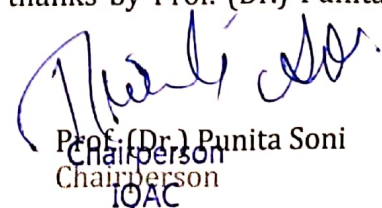 thanks by Prof. (Dr.) Punita
Prof. (Dr.) Punita Soni
Chairperson
Chairperson
IQAC